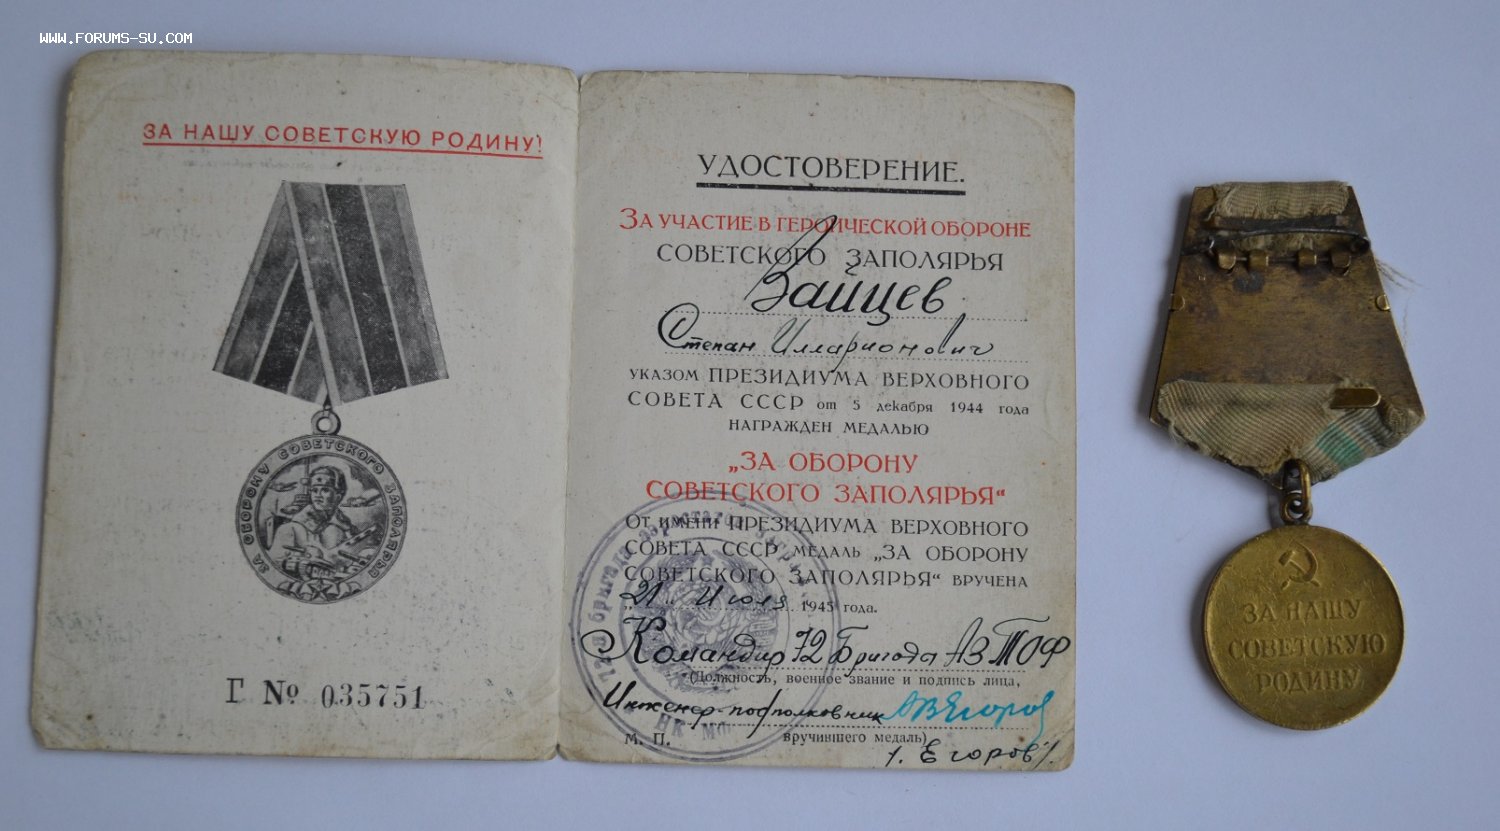 WWW.FORUMS-SU.COM
ЗА НАШУ СОВЕТСКУЮ РОДИНУ!
ЗА ОБОРОНУ СОВЕТСКОГО ЗАПОЛЯРЬЯ
Г № 035751
УДОСТОВЕРЕНИЕ.
ЗА УЧАСТИЕ В ГЕРОИЧЕСКОЙ ОБОРОНЕ
СОВЕТСКОГО ЗАПОЛЯРЬЯ
Зайцев
Степан Илларионович
УКАЗОМ ПРЕЗИДИУМА ВЕРХОВНОГО
СОВЕТА СССР от 5 декабря 1944 года
НАГРАЖДЕН МЕДАЛЬЮ
„ЗА ОБОРОНУ
СОВЕТСКОГО ЗАПОЛЯРЬЯ“
ОТ ИМЕНИ ПРЕЗИДИУМА ВЕРХОВНОГО
СОВЕТА СССР МЕДАЛЬ „ЗА ОБОРОНУ
СОВЕТСКОГО ЗАПОЛЯРЬЯ“ ВРУЧЕНА
21 Июля 1945 года.
Командир 72 Бригада АЗ ТОФ
(Должность, военное звание и подпись лица,
Инженер-подполковник АВЕгоров
М. П. вручившего медаль)
/. Егоров/.
72-я бригада аэростатов
НК МФ
ЗА НАШУ
СОВЕТСКУЮ
РОДИНУ